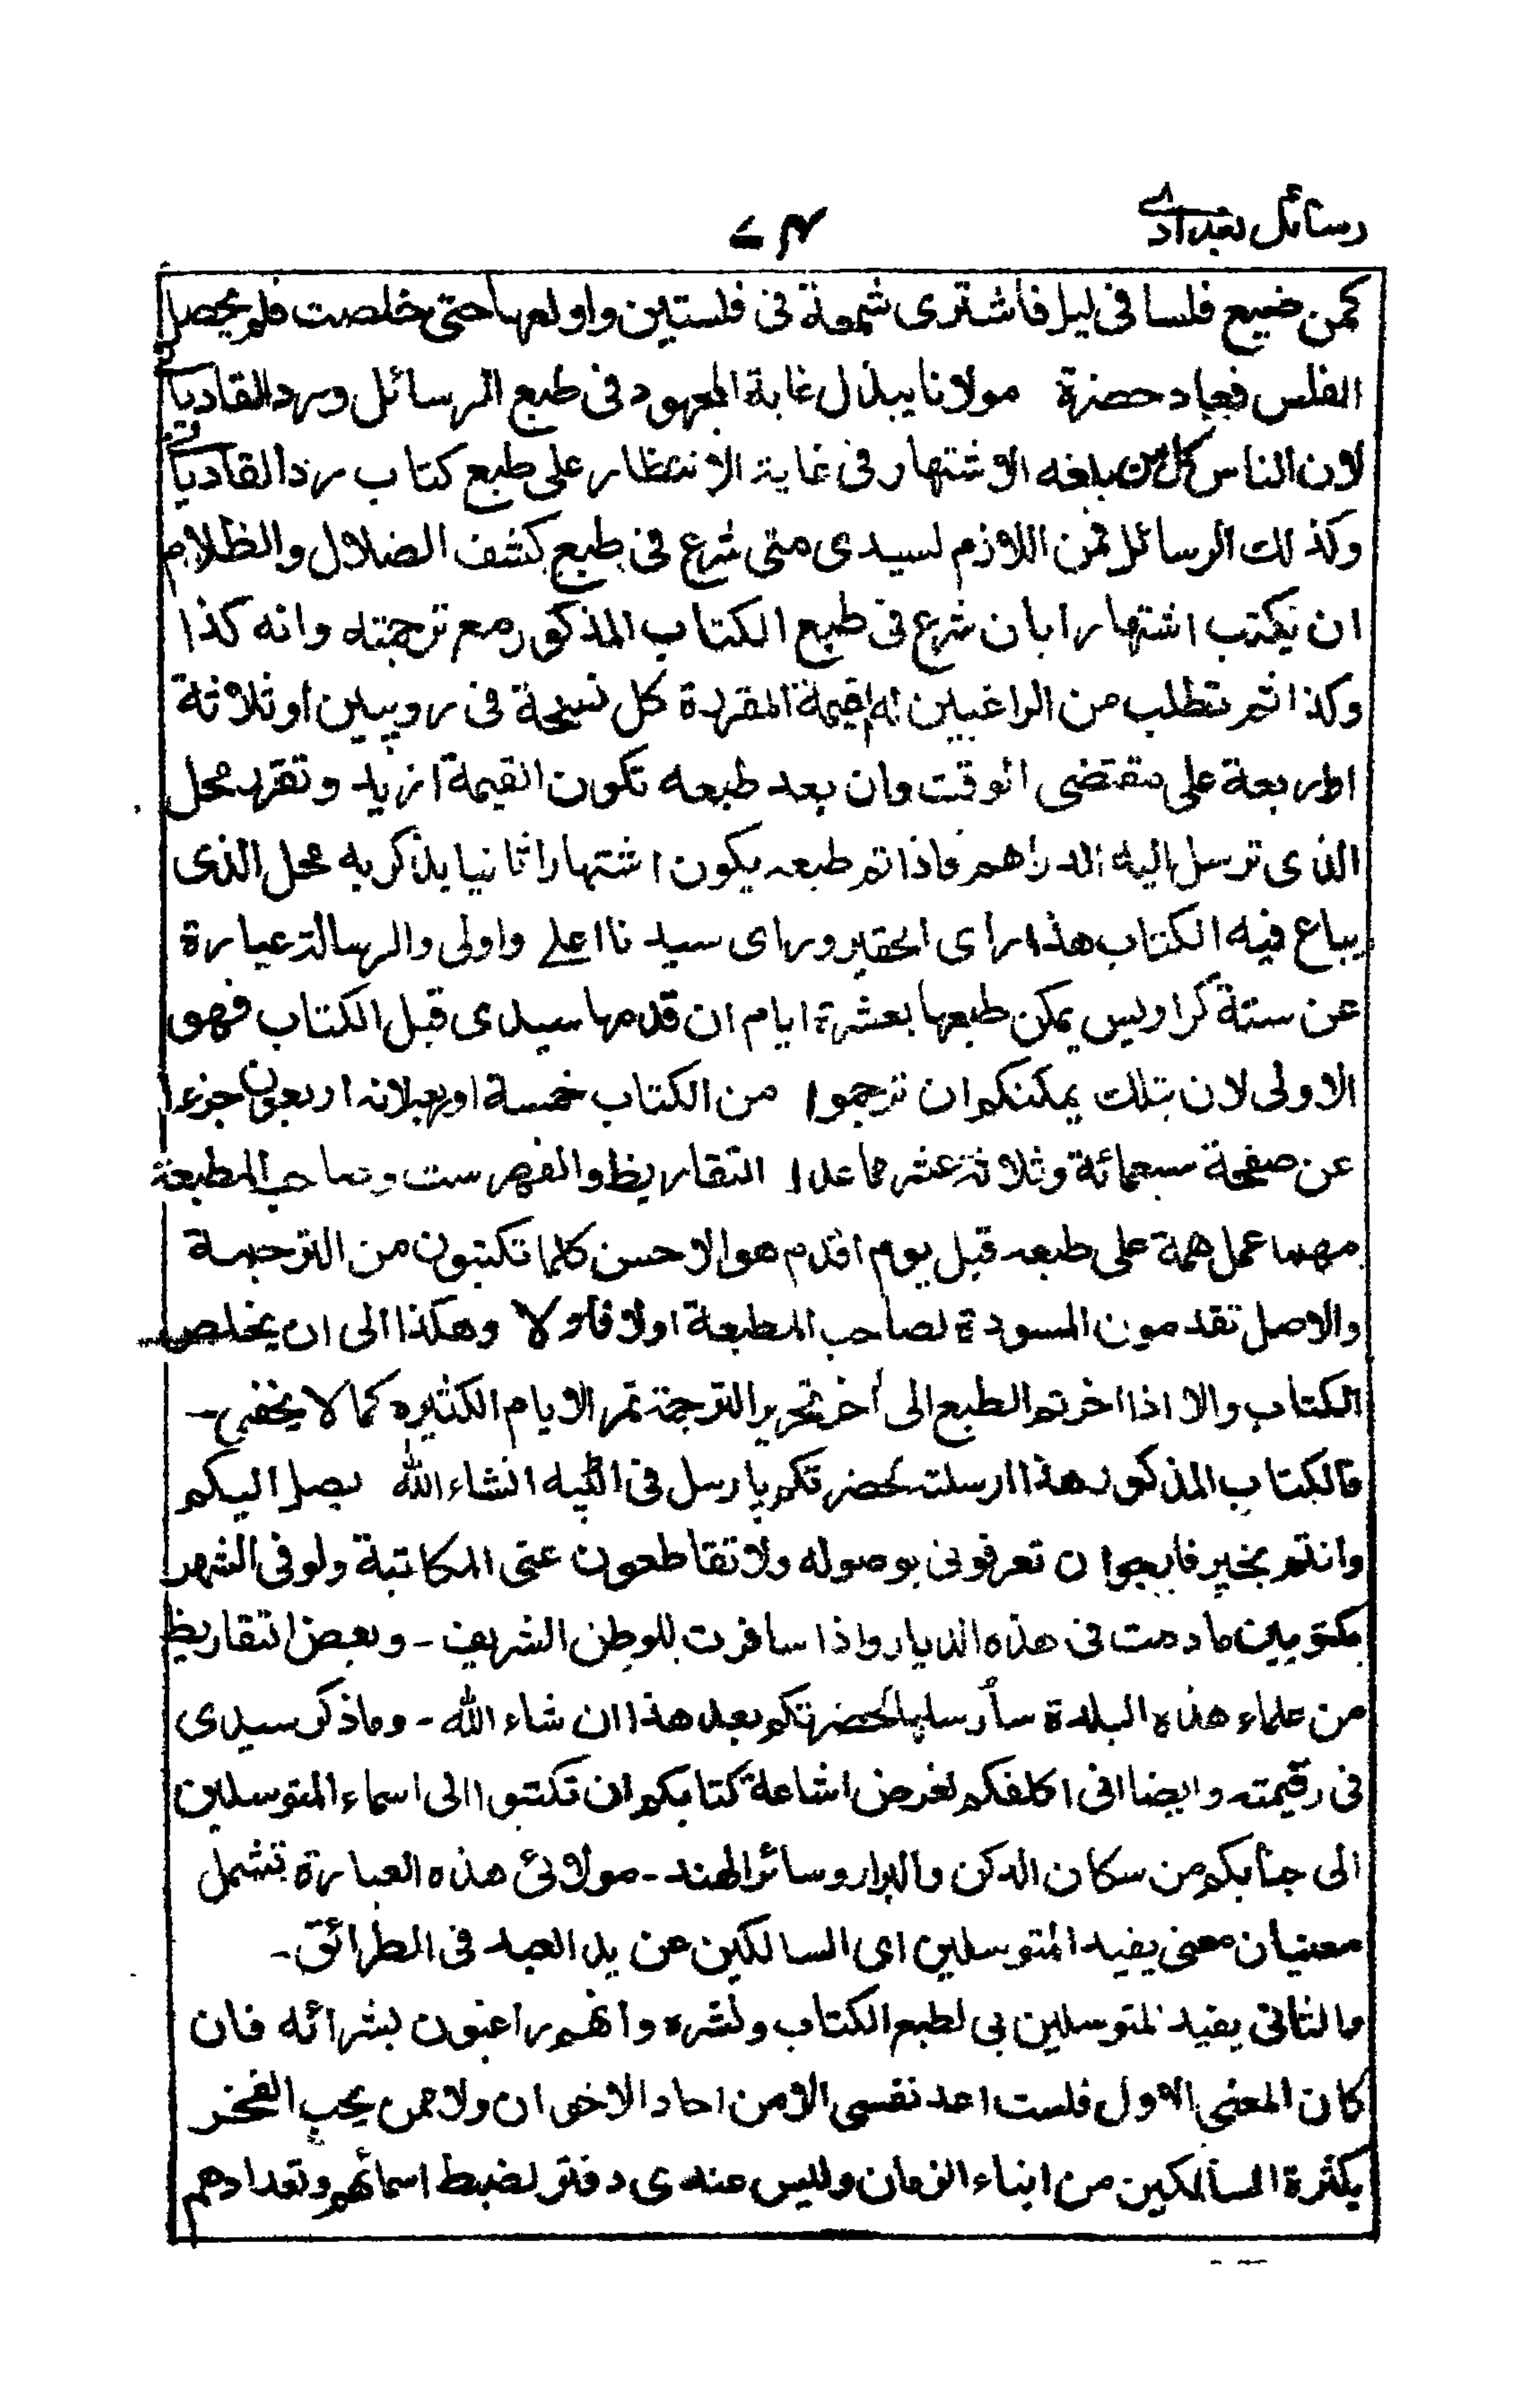 رسائل بغدادے
۷۴
كمن ضيع فلسا فى ليل فأشترى شمعة فى فلستين واولعها حتى خلصت فلم يحصل
الفلس فجاد حضرة مولانا يبذل غاية المجهود فى طبع الرسائل ورد القاديانى
لان الناس كل من بلغه الاشتهار فى غاية الانتظار على طبع كتاب رد القاديانى
وكذلك الرسائل فمن اللازم لسيدى متى شرع فى طبع كشف الضلال والظلام
ان يكتب اشتهارا بان شرع فى طبع الكتاب المذكور مع ترجمته وانه كذا
وكذا ثم تطلب من الراغبين له القيمة المقررة كل نسخة فى روپيين او ثلاثة
او اربعة على مقتضى الوقت وان بعد طبعه تكون القيمة ازيد وتقرر محل
الذى ترسل اليه الدراهم فاذا تم طبعه يكون اشتهارا ثانيا يذكر به محل الذى
يباع فيه الكتاب هذا راى الحقير وراى سيدنا اعلے واولى والرسالة عبارة
عن ستة كراريس يمكن طبعها بعشرة ايام ان قدمها سيدى قبل الكتاب فهو
الاولى لان بتلك يمكنكم ان ترجموا من الكتاب خمسة اربعة لانه اربعون جزءا
عن صفحة سبعمائة وثلاثة عشر ما عدا التقاريظ والفهرست وصاحب المطبعة
مهما عمل همة على طبعه قبل يوم اقدم هو الاحسن كلما تكتبون من الترجمة
والاصل تقدمون المسودة لصاحب المطبعة اولا فاولا وهكذا الى ان يخلص
الكتاب والا اذا اخرتم الطبع الى أخر تحرير الترجمة تمر الايام الكثيره كما لا يخفى ـ
فالكتاب المذكور هذا ارسلته لحضرتكم بارسل فى الٹپه انشاء الله يصل اليكم
وانتم بخير فارجو ان تعرفونى بوصوله ولا تقاطعون عنى المكاتبة ولو فى الشهر
مكتوبين ما دمت فى هذه الديار واذا سافرت للوطن الشريف ـ وبعض التقاريظ
من علماء هذه البلدة سأرسلها لحضرتكم بعد هذا ان شاء الله ـ وما ذكر سيدى
فى رقيمته وايضا انى اكلفكم لغرض اشاعة كتابكم ان تكتبوا الى اسماء المتوسلين
الى جنابكم من سكان الدكن والبرار وسائر الهند ـ مولائ هذه العبارة تشمل
معنيان معنى يفيد المتوسلين اى السالكين عن يد العبد فى الطرائق ـ
والثانى يفيد المتوسلين بى لطبع الكتاب ونشره وانهم راغبون بشرائه فان
كان المعنى الاول فلست اعد نفسى الا من احاد الاخوان ولا ممن يحب الفخر
بكثرة السالكين من ابناء الزمان وليس عندى دفتر لضبط اسمائهم وتعدادهم